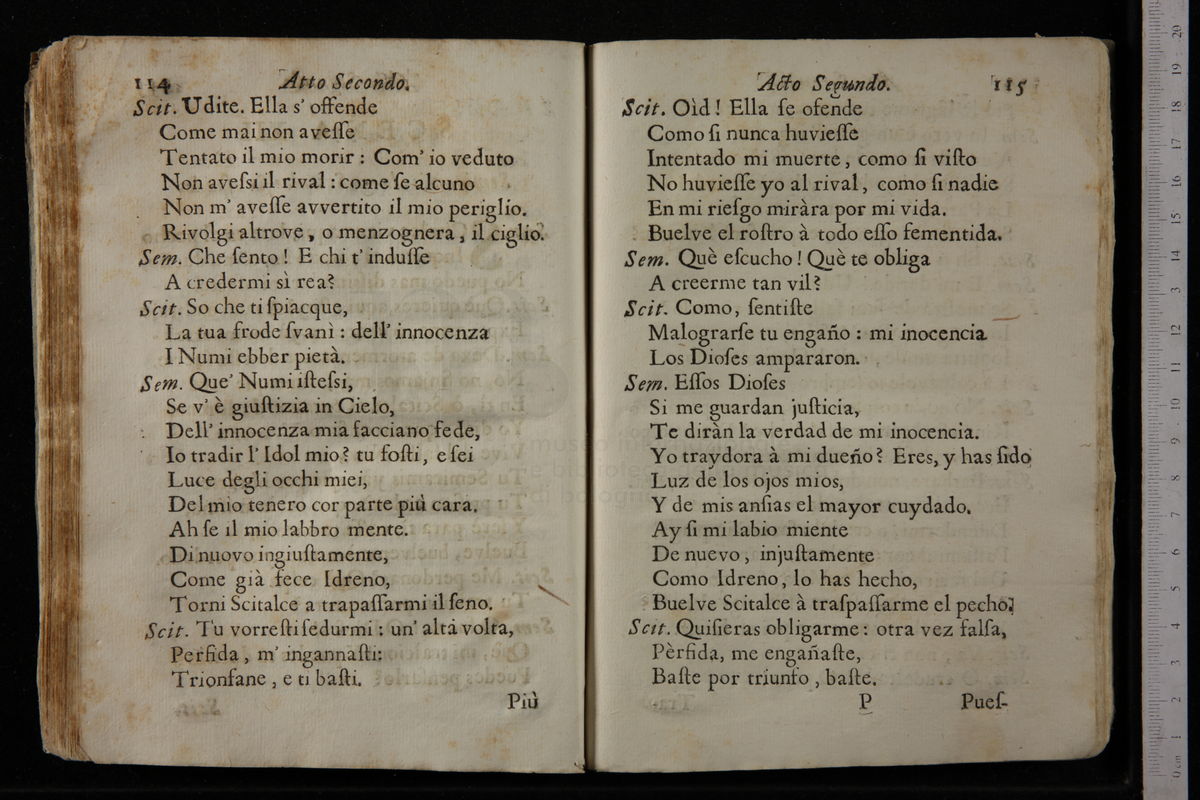 114 Atto Secondo.
Scit. Udite. Ella s' offende
Come mai non aveſſe
Tentato il mio morir : Com' io veduto
Non aveſsi il rival : come ſe alcuno
Non m' aveſſe avvertito il mio periglio.
Rivolgi altrove, o menzognera, il ciglio.
Sem. Che ſento ! E chi t' induſſe
A credermi sì rea?
Scit. So che ti ſpiacque,
La tua frode ſvanì : dell' innocenza
I Numi ebber pietà.
Sem. Que' Numi iſteſsi,
Se v' è giuſtizia in Cielo,
Dell' innocenza mia facciano fede,
Io tradir l' Idol mio? tu foſti, e ſei
Luce degli occhi miei,
Del mio tenero cor parte più cara.
Ah ſe il mio labbro mente.
Di nuovo ingiuſtamente,
Come già fece Idreno,
Torni Scitalce a trapaſſarmi il ſeno.
Scit. Tu vorreſti ſedurmi : un' altà volta,
Perfida, m' ingannaſti:
Trionfane, e ti baſti.
Più
Acto Segundo. 115
Scit. Oìd ! Ella ſe ofende
Como ſi nunca huvieſſe
Intentado mi muerte, como ſi viſto
No huvieſſe yo al rival, como ſi nadie
En mi rieſgo miràra por mi vida.
Buelve el roſtro à todo eſſo fementida.
Sem. Què eſcucho ! Què te obliga
A creerme tan vil?
Scit. Como, ſentiſte
Malograrſe tu engaño : mi inocencia
Los Dioſes ampararon.
Sem. Eſſos Dioſes
Si me guardan juſticia,
Te diràn la verdad de mi inocencia.
Yo traydora à mi dueño? Eres, y has ſido
Luz de los ojos mios,
Y de mis anſias el mayor cuydado.
Ay ſi mi labio miente
De nuevo, injuſtamente
Como Idreno, lo has hecho,
Buelve Scitalce à traſpaſſarme el pecho.
Scit. Quiſieras obligarme : otra vez falſa,
Pèrfida, me engañaſte,
Baſte por triunfo, baſte.
P Pueſ-